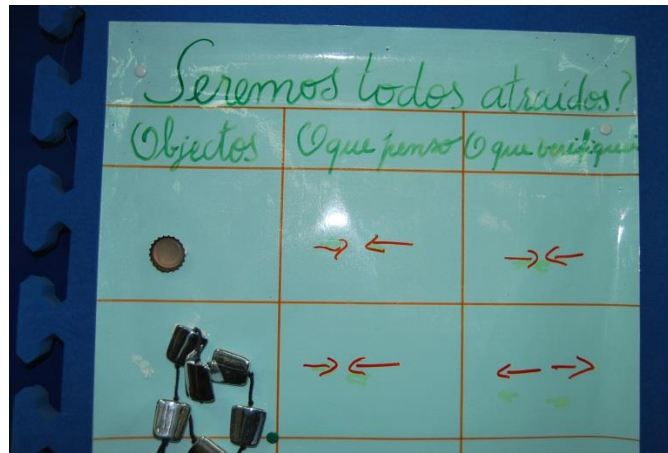 Seremos todos atraídos?
Objectos O que penso O que verifiquei